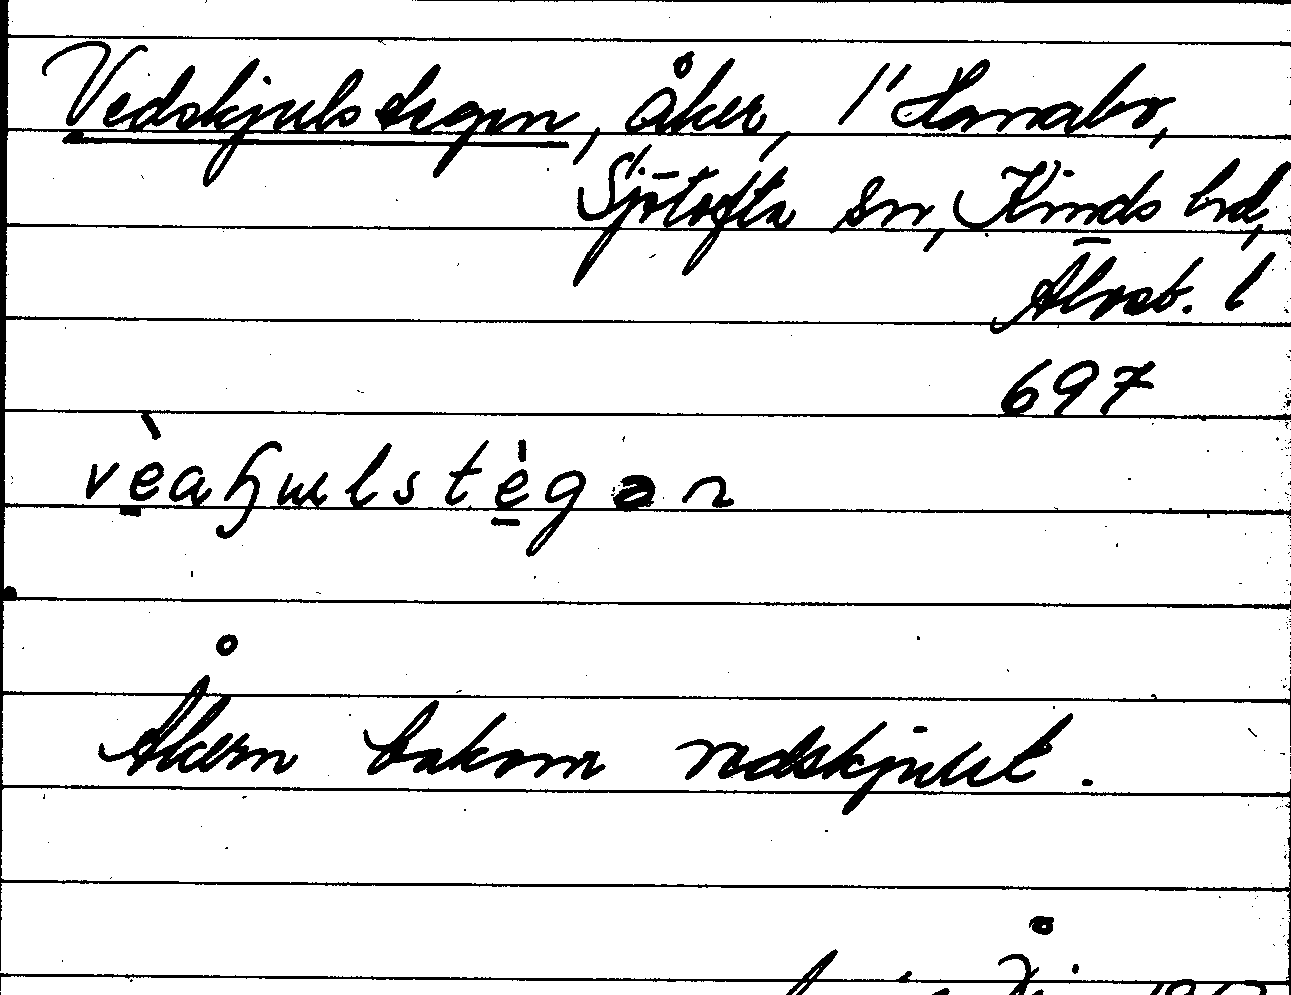 Vedskjulstegen, åker, 1' Hannabo,
Sjötofta sn, Kinds hd,
Älvsb. l
697
Åkern bakom vedskjulet.